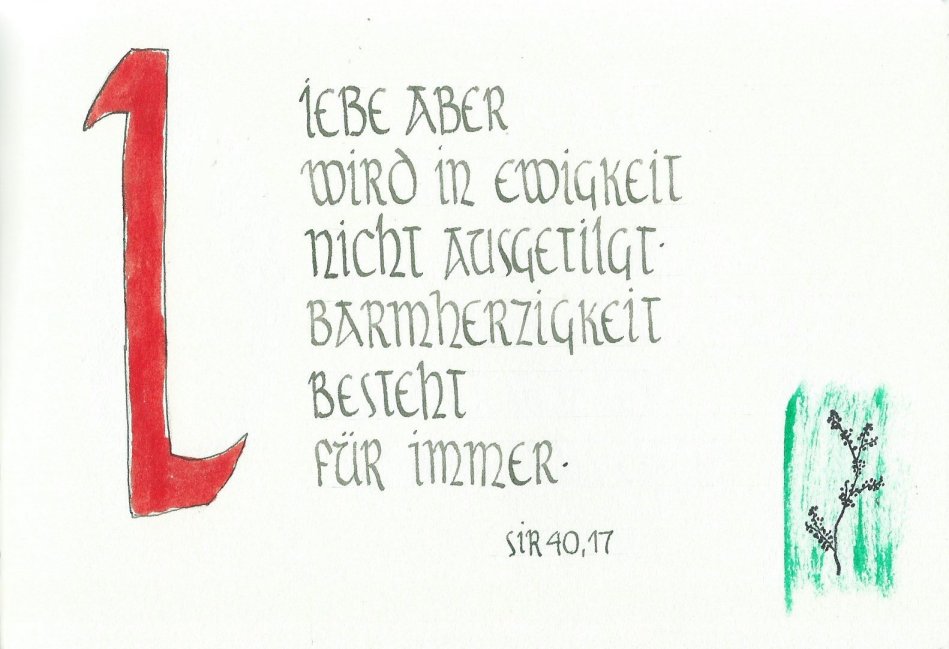 Liebe aber
wird in Ewigkeit
nicht ausgetilgt.
Barmherzigkeit
besteht
für immer.
Sir 40,17